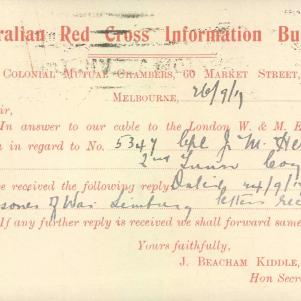 ralian Red Cross Information Bu
Colonial Mutual Chambers, 60 Market Street,
Melbourne, 26/9/17
ir,
In answer to our cable to the London W. & M. E
n in regard to No. 5347 Cpl J. M. He
2nd Tunn Coy
e received the following reply Dated 24/9/1
isoner of War Limburg letters rec
If any further reply is received we shall forward same
Yours faithfully,
J. Beacham Kiddle,
Hon Secre